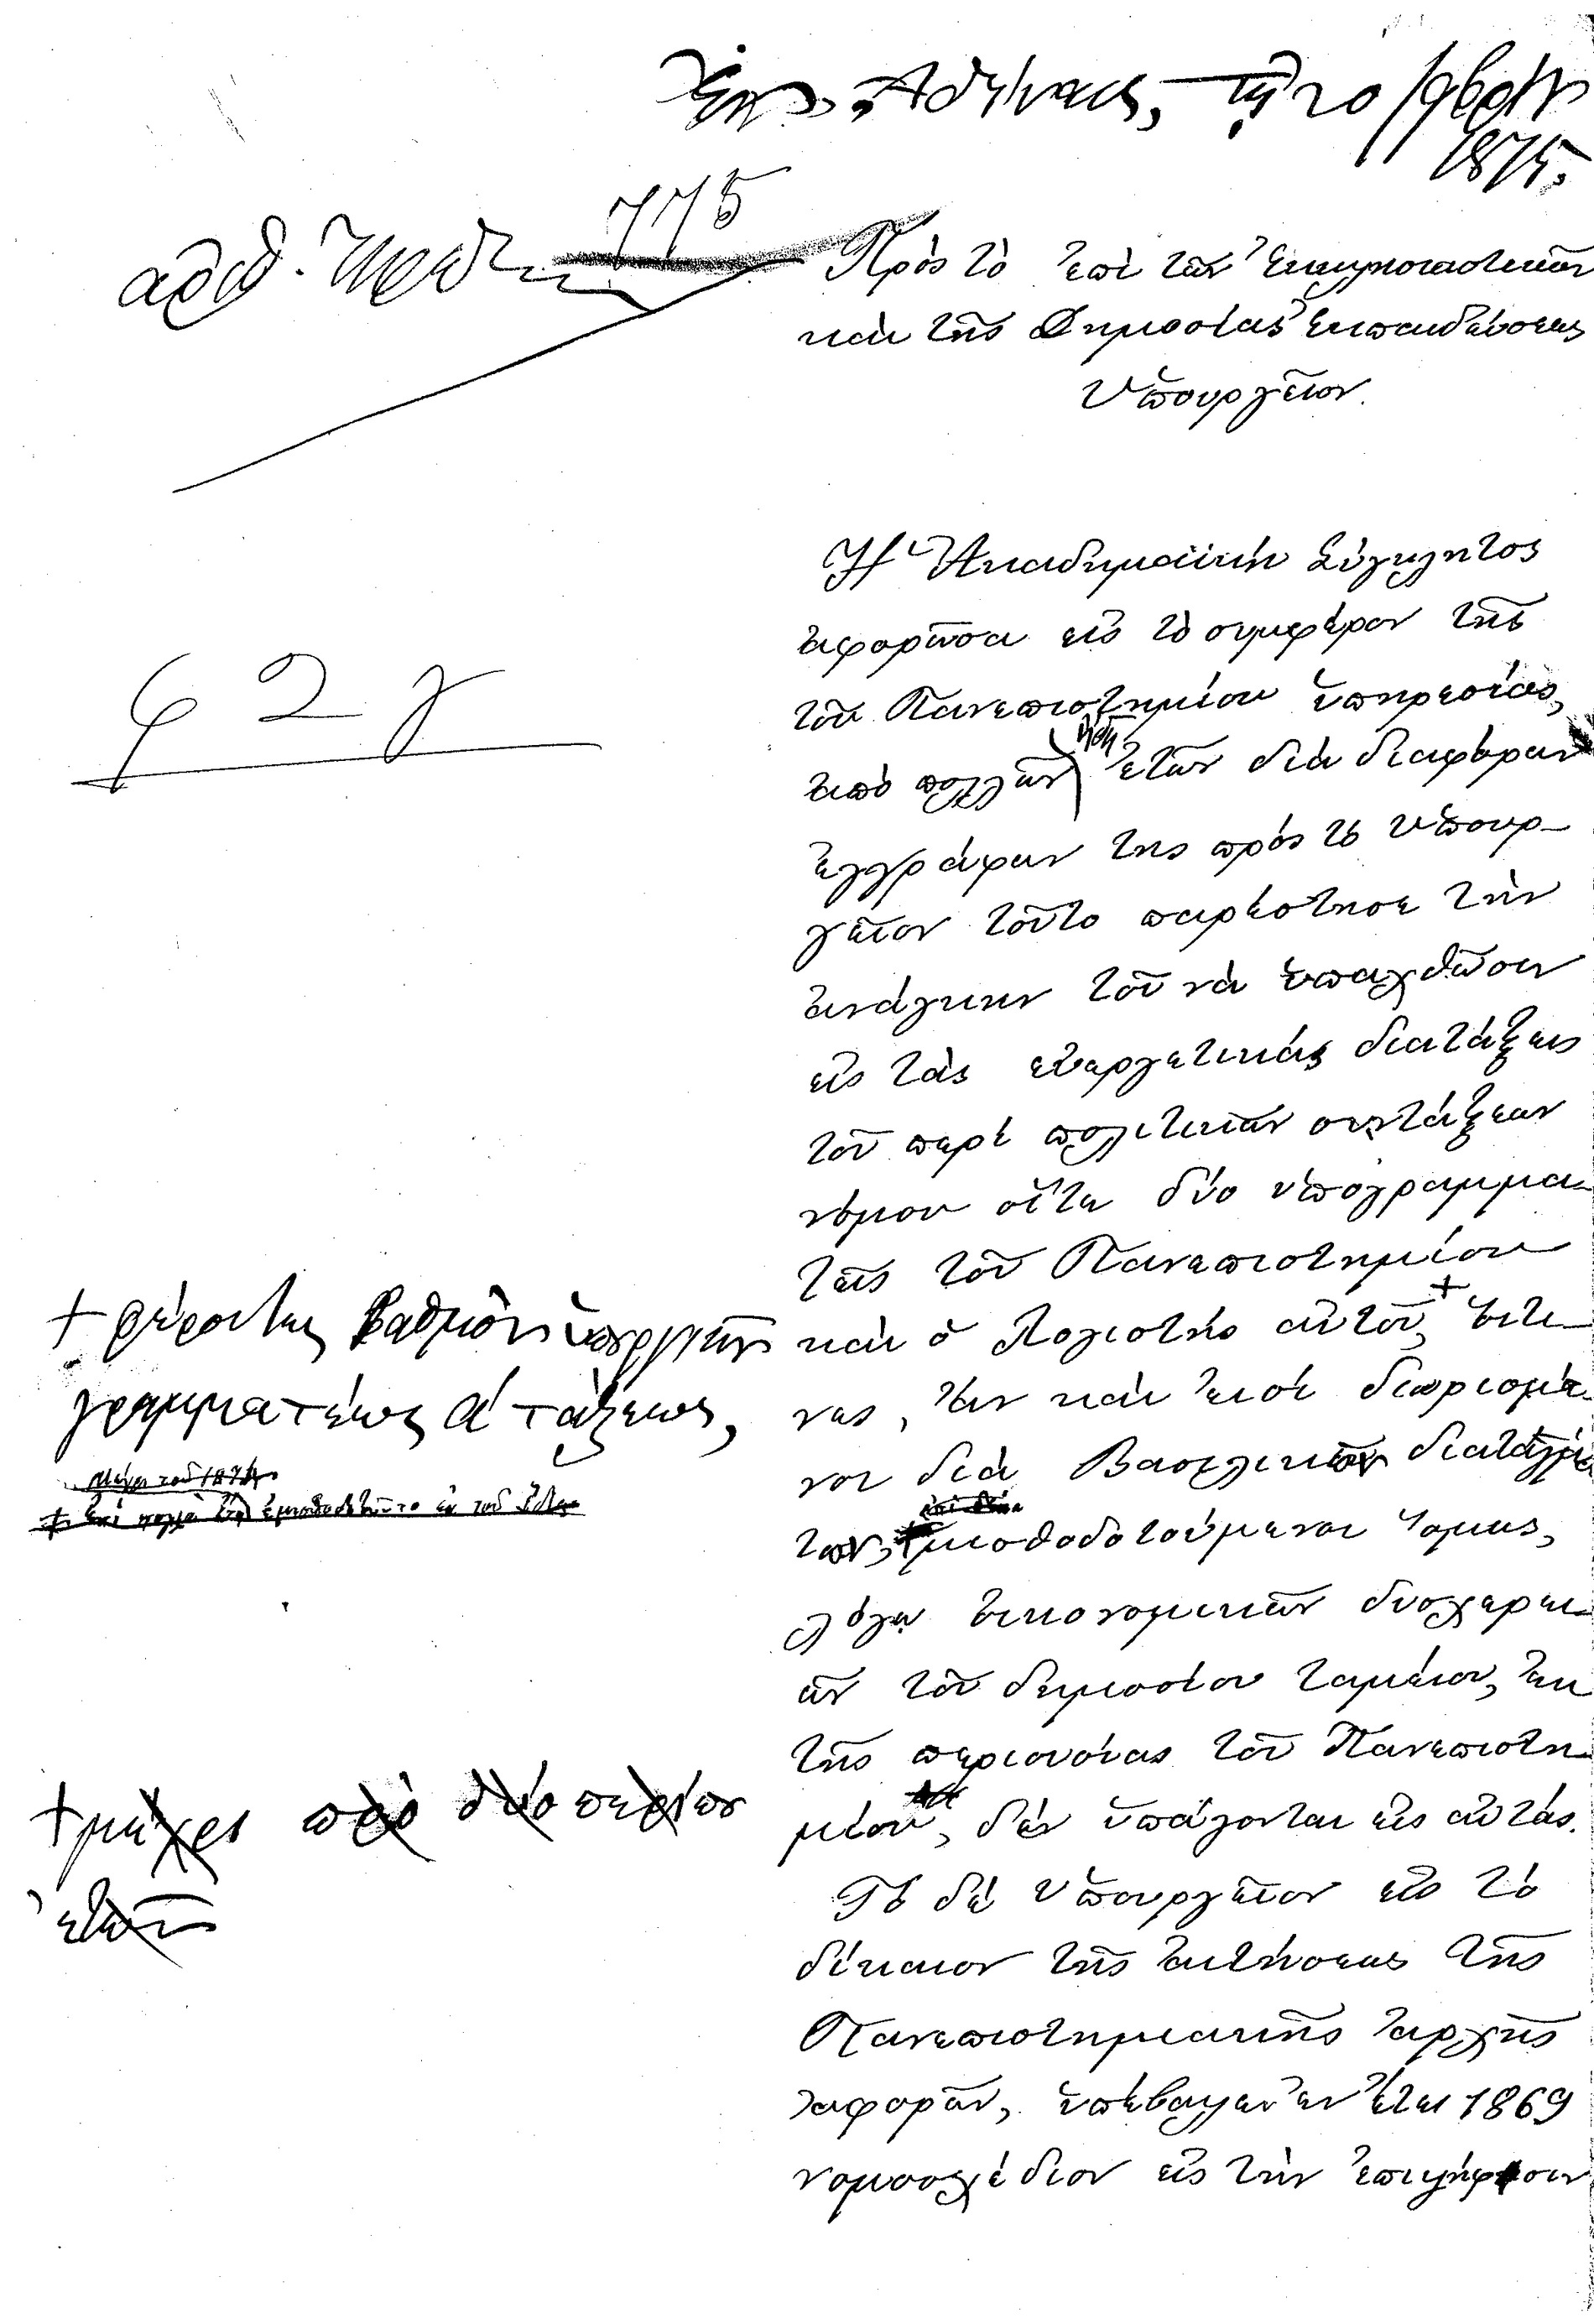 Ἐν Ἀθήναις, τῇ 20 9βρίου
1875.
αριθ. Πρωτ. 775
Πρὸς τὸ ἐπὶ τῶν Ἐκκλησιαστικῶν
καὶ τῆς Δημοσίας Ἐκπαιδεύσεως
Ὑπουργεῖον.
φ 2 γ
Ἡ Ἀκαδημαϊκὴ Σύγκλητος
ἀφορῶσα εἰς τὸ συμφέρον τῆς
τοῦ Πανεπιστημίου ὑπηρεσίας,
ἀπὸ πολλῶν ἤδη ἐτῶν διὰ διαφόρων
ἐγγράφων της πρὸς τὸ Ὑπουρ-
γεῖον τοῦτο παρέστησε τὴν
ἀνάγκην τοῦ νὰ ὑπαχθῶσιν
εἰς τὰς εὐεργετικὰς διατάξεις
τοῦ περὶ πολιτικῶν συντάξεων
νόμου οἵ τε δύο ὑπογραμμα-
τεῖς τοῦ Πανεπιστημίου
καὶ ὁ Λογιστὴς αὐτοῦ, + οἵτι-
νες, ἂν καὶ εἰσὶ διωρισμέ-
νοι διὰ Βασιλικῶν διαταγμά
των, μισθοδοτούμενοι ὅμως,
λόγῳ οἰκονομικῶν δυσχερει-
ῶν τοῦ δημοσίου ταμείου, ἐκ
τῆς περιουσίας τοῦ Πανεπιστη-
μίου, δὲν ὑπάγονται εἰς αὐτάς.
Τὸ δὲ Ὑπουργεῖον εἰς τὸ
δίκαιον τῆς αἰτήσεως τῆς
Πανεπιστημιακῆς ἀρχῆς
ἀφορῶν, ὑπέβαλεν ἐν ἔτει 1869
νομοσχέδιον εἰς τὴν ἐπιψήφισιν
+ φέροντες βαθμὸν ὑπουργικοῦ
γραμματέως Α΄ τάξεως,
Μέχρι τοῦ 1874
+ ἐπὶ πολλὰ ἔτη ἐμισθοδοτοῦντο ἐκ τοῦ
+ μέχρι πρὸ δύο περίπου
ἐτῶν